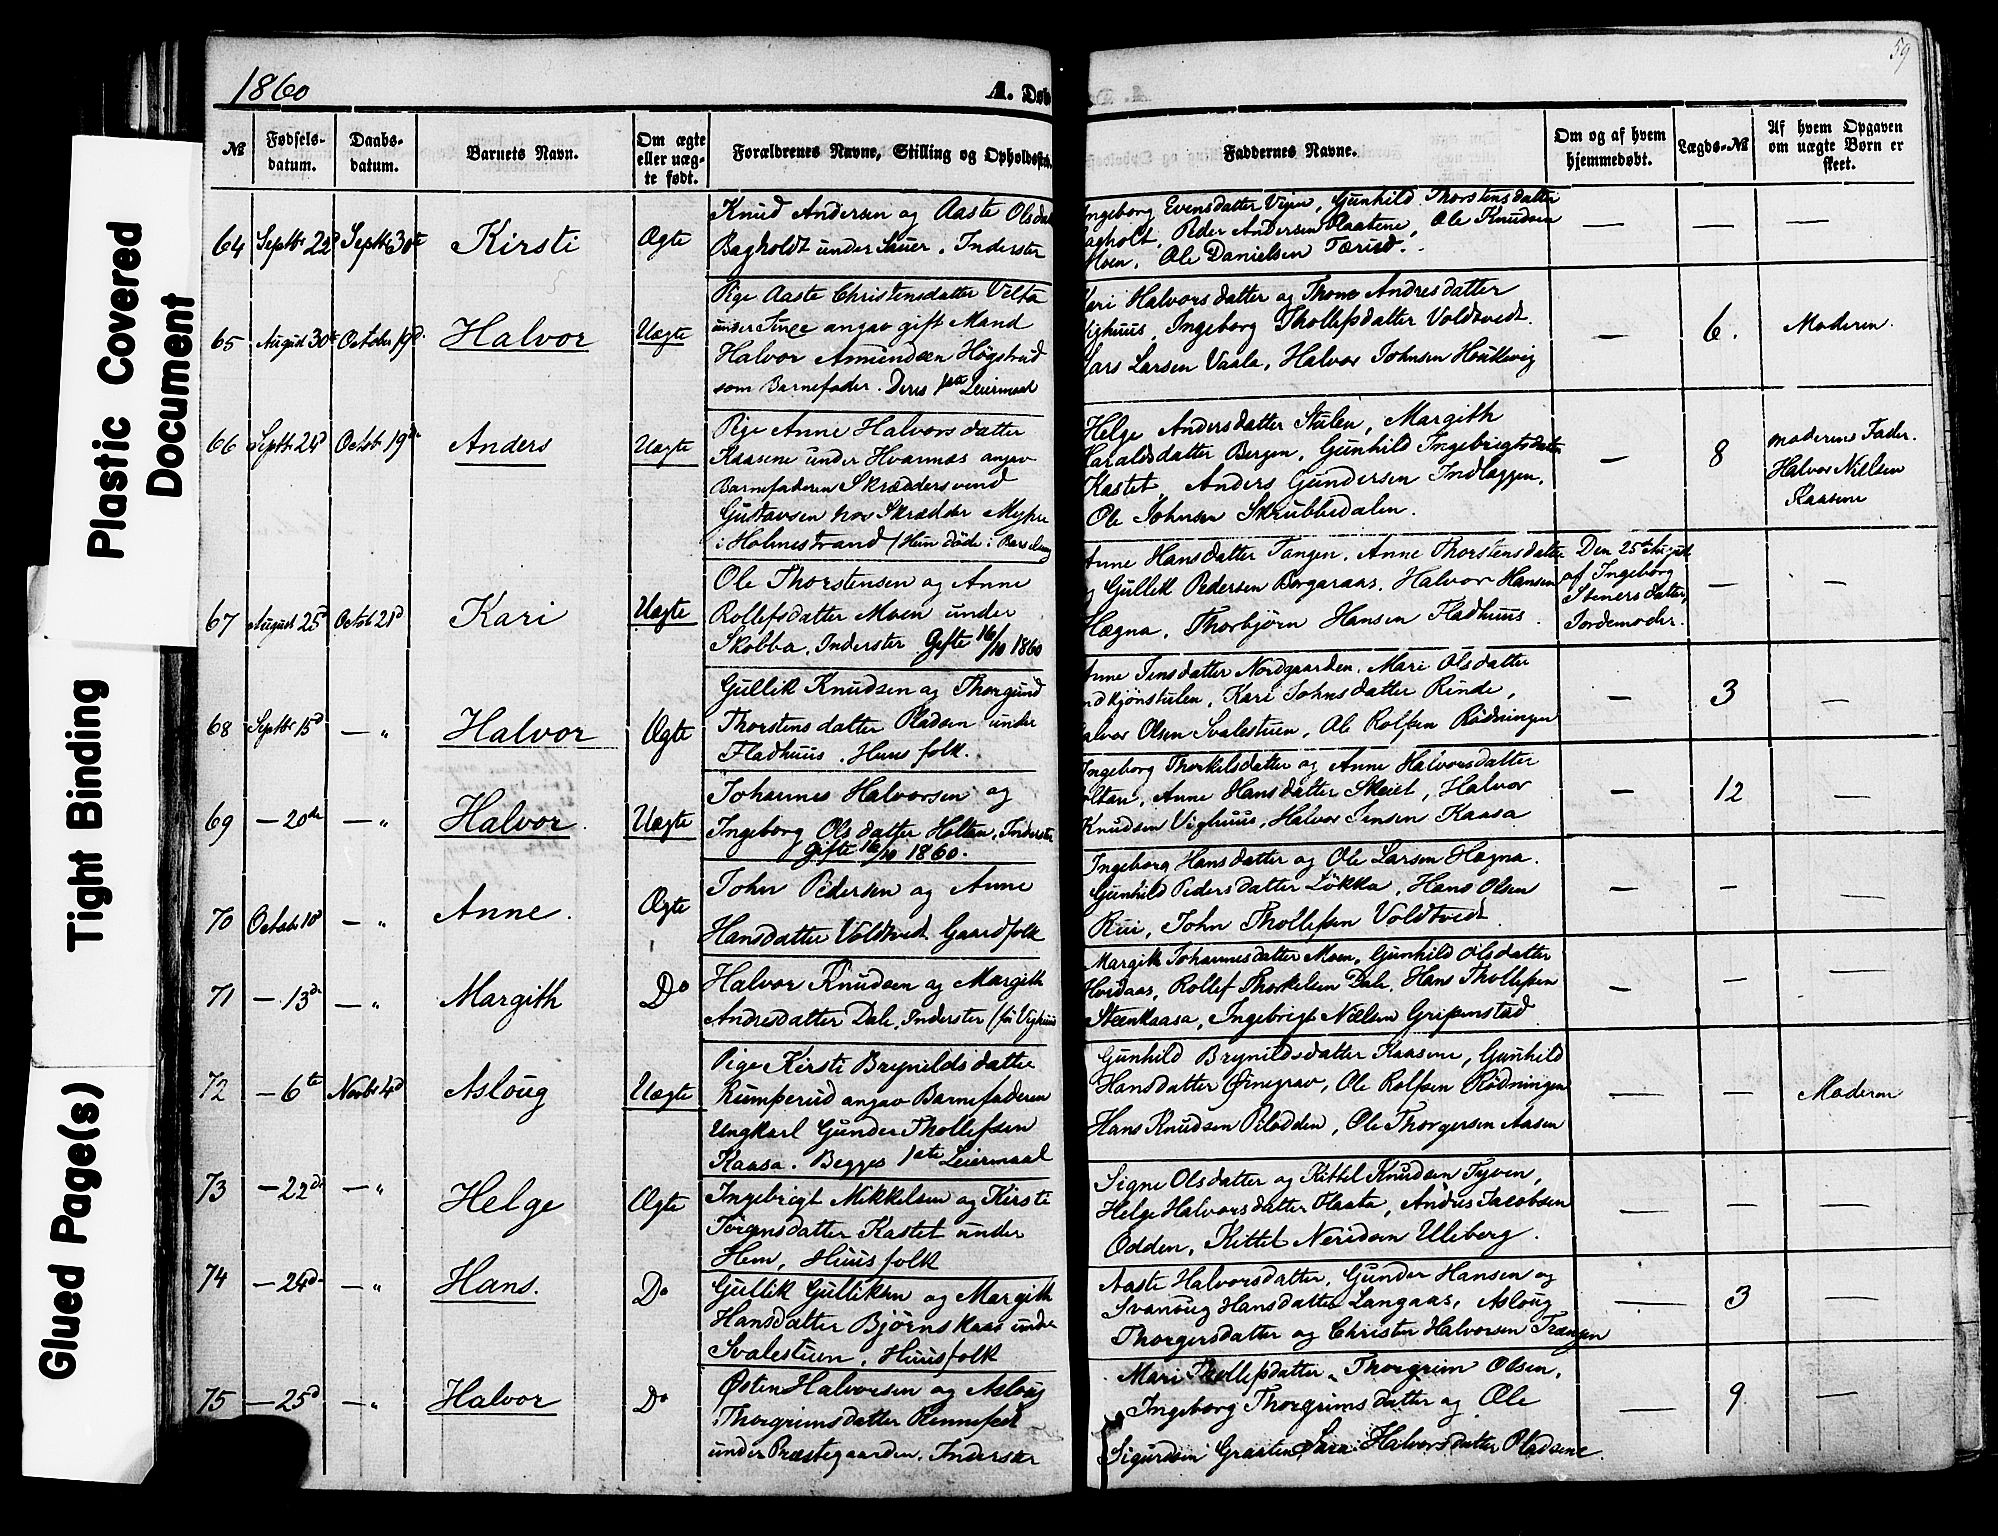 59
1860
A. Døb
№
Fødsels-
datum.
Daabs-
datum.
Barnets Navn.
Om ægte
eller uæg-
te født.
Forældrenes Navne, Stilling og Opholdssted.
Faddernes Navne.
Om og af hvem
hjemmedøbt.
Lægds-№
Af hvem Opgaven
om uægte Børn er
skeet.
64 Septbr 22d Septbr 30te Kirsti Ægte
Knud Andersen og Aaste Olsdatt
Bagholdt under Sauer. Inderster
Ingeborg Evensdatter Vipen, Gunhild Thorstensdatter
Bagholt, Peder Andersen Plaatene, Ole Knudsen
Moen, Ole Danielsen Tærud.
— —
65 August 30te October 19d. Halvor Uægte
Pige Aaste Christensdatter Velta
under angav gift Mand
Halvor Amundsen Høgstrud
som Barnefader. Deres 1ste Leiermaal
Kari Halvorsdatter og Thone Andresdatter
Vighuus, Ingeborg Thollefsdatter Voldtvedt.
Lars Larsen Vaala, Halvor Johnsen Houkevig
— 6. Moderen.
66 Septbr 24d Octob 19de Anders Uægte
Pige Anne Halvorsdatter
Kaasene under Hvamnas angav
Barnefaderen Skræddersvend
Gustavsen hos Skrædder Myhre
i Holmestrand (Hun døde i Barselseng
Helge Andersdatter Stulen, Margith
Haraldsdatter Bergen, Gunhild Ingebrigtsdatter
Kastet, Anders Gundersen Indlæggen,
Ole Johnsen Skrubbedalen.
— 8
moderens Fader.
Halvor Nielsen
Kaasene
67 August 25d Octob 21d Kari Uægte
Ole Thorstensen og Anne
Rollefsdatter Moen under
Skobba, Inderster Gifte 16/10 1860
Anne Hansdatter Tangen, Anne Thorstensdatter
og Gullik Pedersen Borgaraas, Halvor Hansen
Hægna, Thorbjørn Hansen Fladhuus.
Den 25te August
af Ingeborg
Stenersdatter,
Jordemoder.
— —
68 Septbr 15d — " Halvor Ægte
Gullik Knudsen og Thorgund
Thorstensdatter Pladsen under
Fladhuus. Huusfolk.
Anne Jensdatter Nordgaarden, Mari Olsdatter
Kari Johnsdatter Rinde,
Halvor Olsen Svalestuen, Ole Rolfsen Rødningen
— 3 —
69 — 20de — " Halvor. Uægte
Johannes Halvorsen og
Ingeborg Olsdatter Holtan, Inderster
Gifte 16/10 1860.
Ingeborg Thorkelsdatter og Anne Halvorsdatter
Holtan, Anne Hansdatter Skeiet, Halvor
Knudsen Vighuus, Halvor Jensen Kaasa
— 12 —
70 Octobr 10d — " Anne. Ægte
John Pedersen og Anne
Hansdatter Voldtvedt Gaardfolk
Ingeborg Hansdatter og Ole Larsen Hægna.
Gunhild Pedersdatter Løkka, Hans Olsen
Rui, John Thollefsen Voldtvedt
— — —
71 — 13de — " Margith Do
Halvor Knudsen og Margith
Andresdatter Dale, Inderster (fra Vighuus
Margith Johannesdatter Moen, Gunhild Olsdatter
Hvidaas, Rollef Thorkelsen Dale, Hans Thollefsen
Steenkaasa, Ingebrigt Nielsen Gripenstad
— — —
72 — 6te Novbr 4d Asloug Uægte
Pige Kirsti Brynildsdatter
Rumperud angav Barnefaderen
Ungkarl Gunder Thollefsen
Kaasa. Begges 1ste Leiermaal
Gunhild Brynildsdatter Kaasene, Gunhild
Hansdatter Øinegrav, Ole Rolfsen Rødningen
Hans Knudsen Plodden, Ole Thorgersen Aasen
— — Moderen
73 — 22de — " Helge Ægte
Ingebrigt Mikkelsen og Kirsti
Jørgensdatter Kastet under
Hem, Huusfolk
Signe Olsdatter og Kittel Knudsen Tyven,
Helge Halvorsdatter Plaata, Andres Jacobsen
Odden, Kittel Neridsen Uleberg.
— — —
74 — 24d — " Hans. Do
Gullik Gulliksen og Margith
Hansdatter Bjørnskaas under
Svalestuen, Huusfolk
Aaste Halvorsdatter, Gunder Hansen og
Svanoug Hansdatter Langaas, Asloug
Thorgersdatter og Christen Halvorsen Trængen
— 3 —
75 — 25d — " Halvor Do
Østen Halvorsen og Asloug
Thorgrimsdatter Rennefedt
under Præstegaarden. Inderster
Mari Thollefsdatter, Thorgrim Olsen,
Ingeborg Thorgrimsdatter og Ole
Sigurdsen Graaten, Sara Halvorsdatter Pladsene.
— 9 —
Plastic Covered
Document
Tight Binding
Glued Page(s)